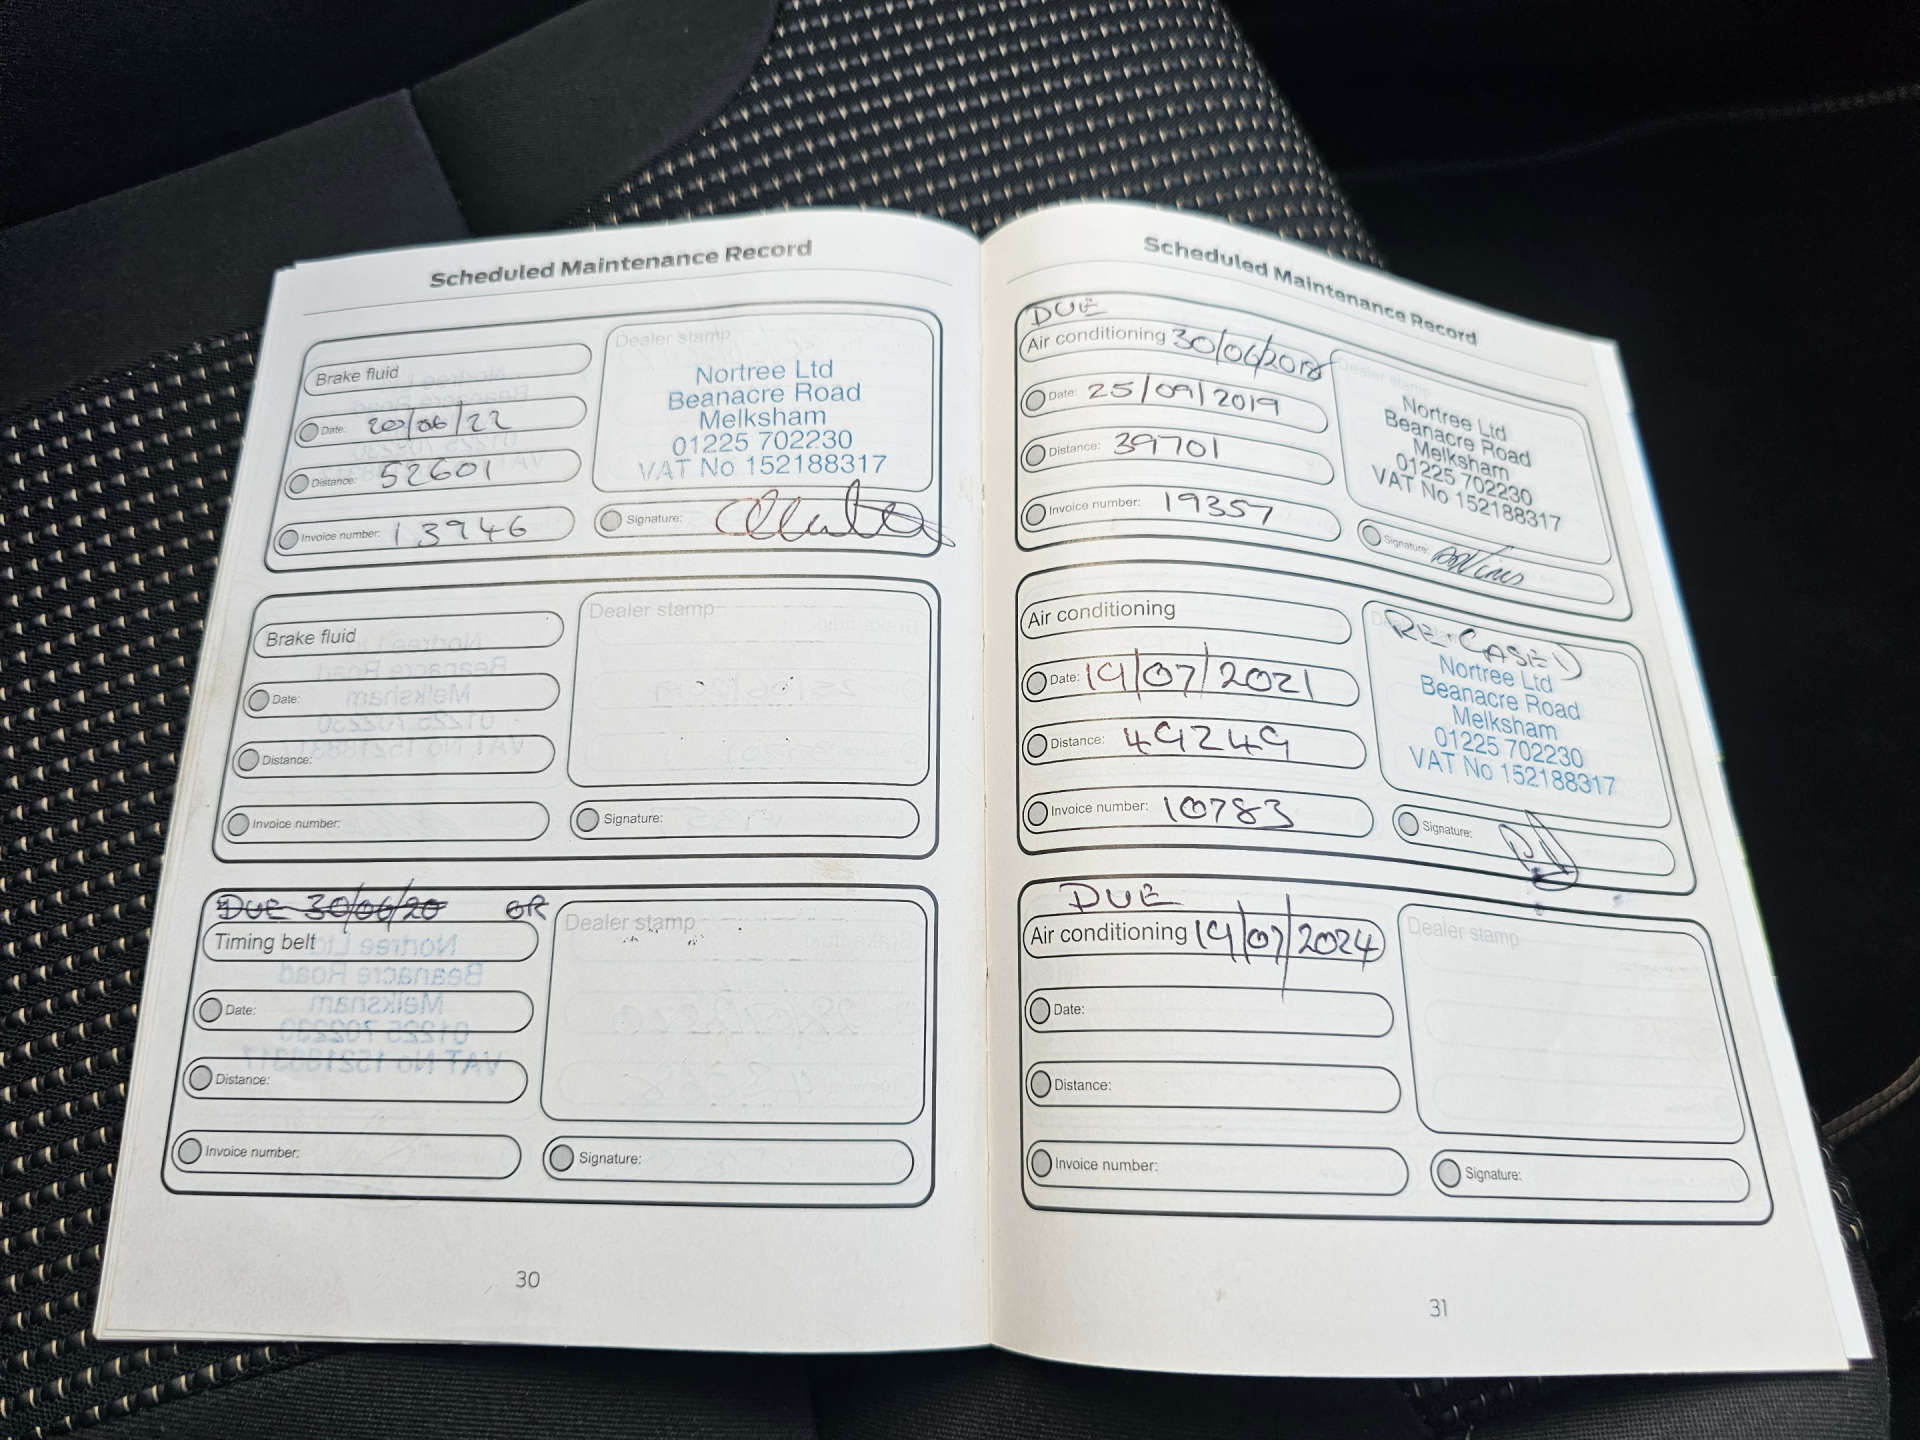 Scheduled Maintenance Record
Brake fluid
Date: 20/06/22
Distance: 52601
Invoice number: 13946
Dealer stamp
Nortree Ltd
Beanacre Road
Melksham
01225 702230
VAT No 152188317
Signature:
Brake fluid
Date:
Distance:
Invoice number:
Dealer stamp
Signature:
DUE 30/06/20 OR
Timing belt
Date:
Distance:
Invoice number:
Dealer stamp
Signature:
30
Scheduled Maintenance Record
DUE
Air conditioning 30/06/2018
Date: 25/09/2019
Distance: 39701
Invoice number: 19357
Dealer stamp
Nortree Ltd
Beanacre Road
Melksham
01225 702230
VAT No 152188317
Signature:
Air conditioning
Date: 19/07/2021
Distance: 49249
Invoice number: 10783
RE-GASED
Nortree Ltd
Beanacre Road
Melksham
01225 702230
VAT No 152188317
Signature:
DUE
Air conditioning 19/07/2024
Date:
Distance:
Invoice number:
Dealer stamp
Signature:
31